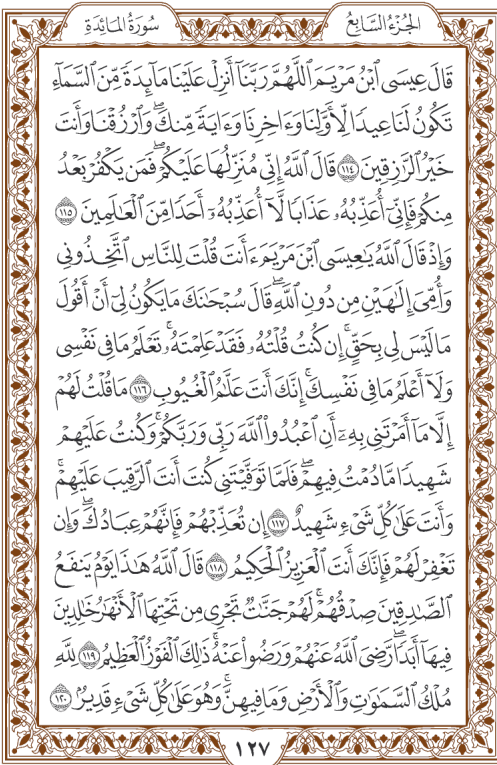 الجُزْءُ السَّابِعُ
سُورَةُ المَائدَةِ
قَالَ عِيسَى ٱبْنُ مَرْيَمَ ٱللَّهُمَّ رَبَّنَآ أَنزِلْ عَلَيْنَا مَآئِدَةً مِّنَ ٱلسَّمَآءِ
تَكُونُ لَنَا عِيدًا لِّأَوَّلِنَا وَءَاخِرِنَا وَءَايَةً مِّنكَۖ وَٱرْزُقْنَا وَأَنتَ
خَيْرُ ٱلرَّٰزِقِينَ ١١٤ قَالَ ٱللَّهُ إِنِّي مُنَزِّلُهَا عَلَيْكُمْۖ فَمَن يَكْفُرْ بَعْدُ
مِنكُمْ فَإِنِّيٓ أُعَذِّبُهُۥ عَذَابًا لَّآ أُعَذِّبُهُۥٓ أَحَدًا مِّنَ ٱلْعَٰلَمِينَ ١١٥
وَإِذْ قَالَ ٱللَّهُ يَٰعِيسَى ٱبْنَ مَرْيَمَ ءَأَنتَ قُلْتَ لِلنَّاسِ ٱتَّخِذُونِي
وَأُمِّيَ إِلَٰهَيْنِ مِن دُونِ ٱللَّهِۖ قَالَ سُبْحَٰنَكَ مَا يَكُونُ لِيٓ أَنْ أَقُولَ
مَا لَيْسَ لِي بِحَقٍّۚ إِن كُنتُ قُلْتُهُۥ فَقَدْ عَلِمْتَهُۥۚ تَعْلَمُ مَا فِي نَفْسِي
وَلَآ أَعْلَمُ مَا فِي نَفْسِكَۚ إِنَّكَ أَنتَ عَلَّٰمُ ٱلْغُيُوبِ ١١٦ مَا قُلْتُ لَهُمْ
إِلَّا مَآ أَمَرْتَنِي بِهِۦٓ أَنِ ٱعْبُدُوا۟ ٱللَّهَ رَبِّي وَرَبَّكُمْۚ وَكُنتُ عَلَيْهِمْ
شَهِيدًا مَّا دُمْتُ فِيهِمْۖ فَلَمَّا تَوَفَّيْتَنِي كُنتَ أَنتَ ٱلرَّقِيبَ عَلَيْهِمْۚ
وَأَنتَ عَلَىٰ كُلِّ شَيْءٍ شَهِيدٌ ١١٧ إِن تُعَذِّبْهُمْ فَإِنَّهُمْ عِبَادُكَۖ وَإِن
تَغْفِرْ لَهُمْ فَإِنَّكَ أَنتَ ٱلْعَزِيزُ ٱلْحَكِيمُ ١١٨ قَالَ ٱللَّهُ هَٰذَا يَوْمُ يَنفَعُ
ٱلصَّٰدِقِينَ صِدْقُهُمْۚ لَهُمْ جَنَّٰتٌ تَجْرِي مِن تَحْتِهَا ٱلْأَنْهَٰرُ خَٰلِدِينَ
فِيهَآ أَبَدًاۖ رَّضِيَ ٱللَّهُ عَنْهُمْ وَرَضُوا۟ عَنْهُۚ ذَٰلِكَ ٱلْفَوْزُ ٱلْعَظِيمُ ١١٩ لِلَّهِ
مُلْكُ ٱلسَّمَٰوَٰتِ وَٱلْأَرْضِ وَمَا فِيهِنَّۚ وَهُوَ عَلَىٰ كُلِّ شَيْءٍ قَدِيرٌۢ ١٢٠
١٢٧